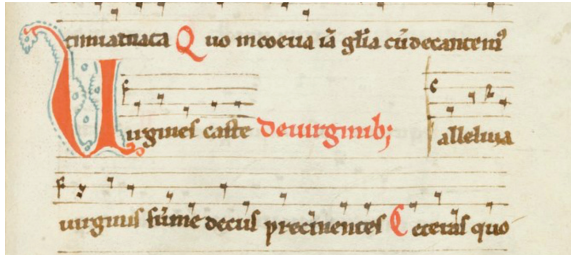 Quo in iā glīa cū decantemꝰ
Uirgines caste De uirginib; alleluia
uirginis sūme decus precinentes Ceteras quo